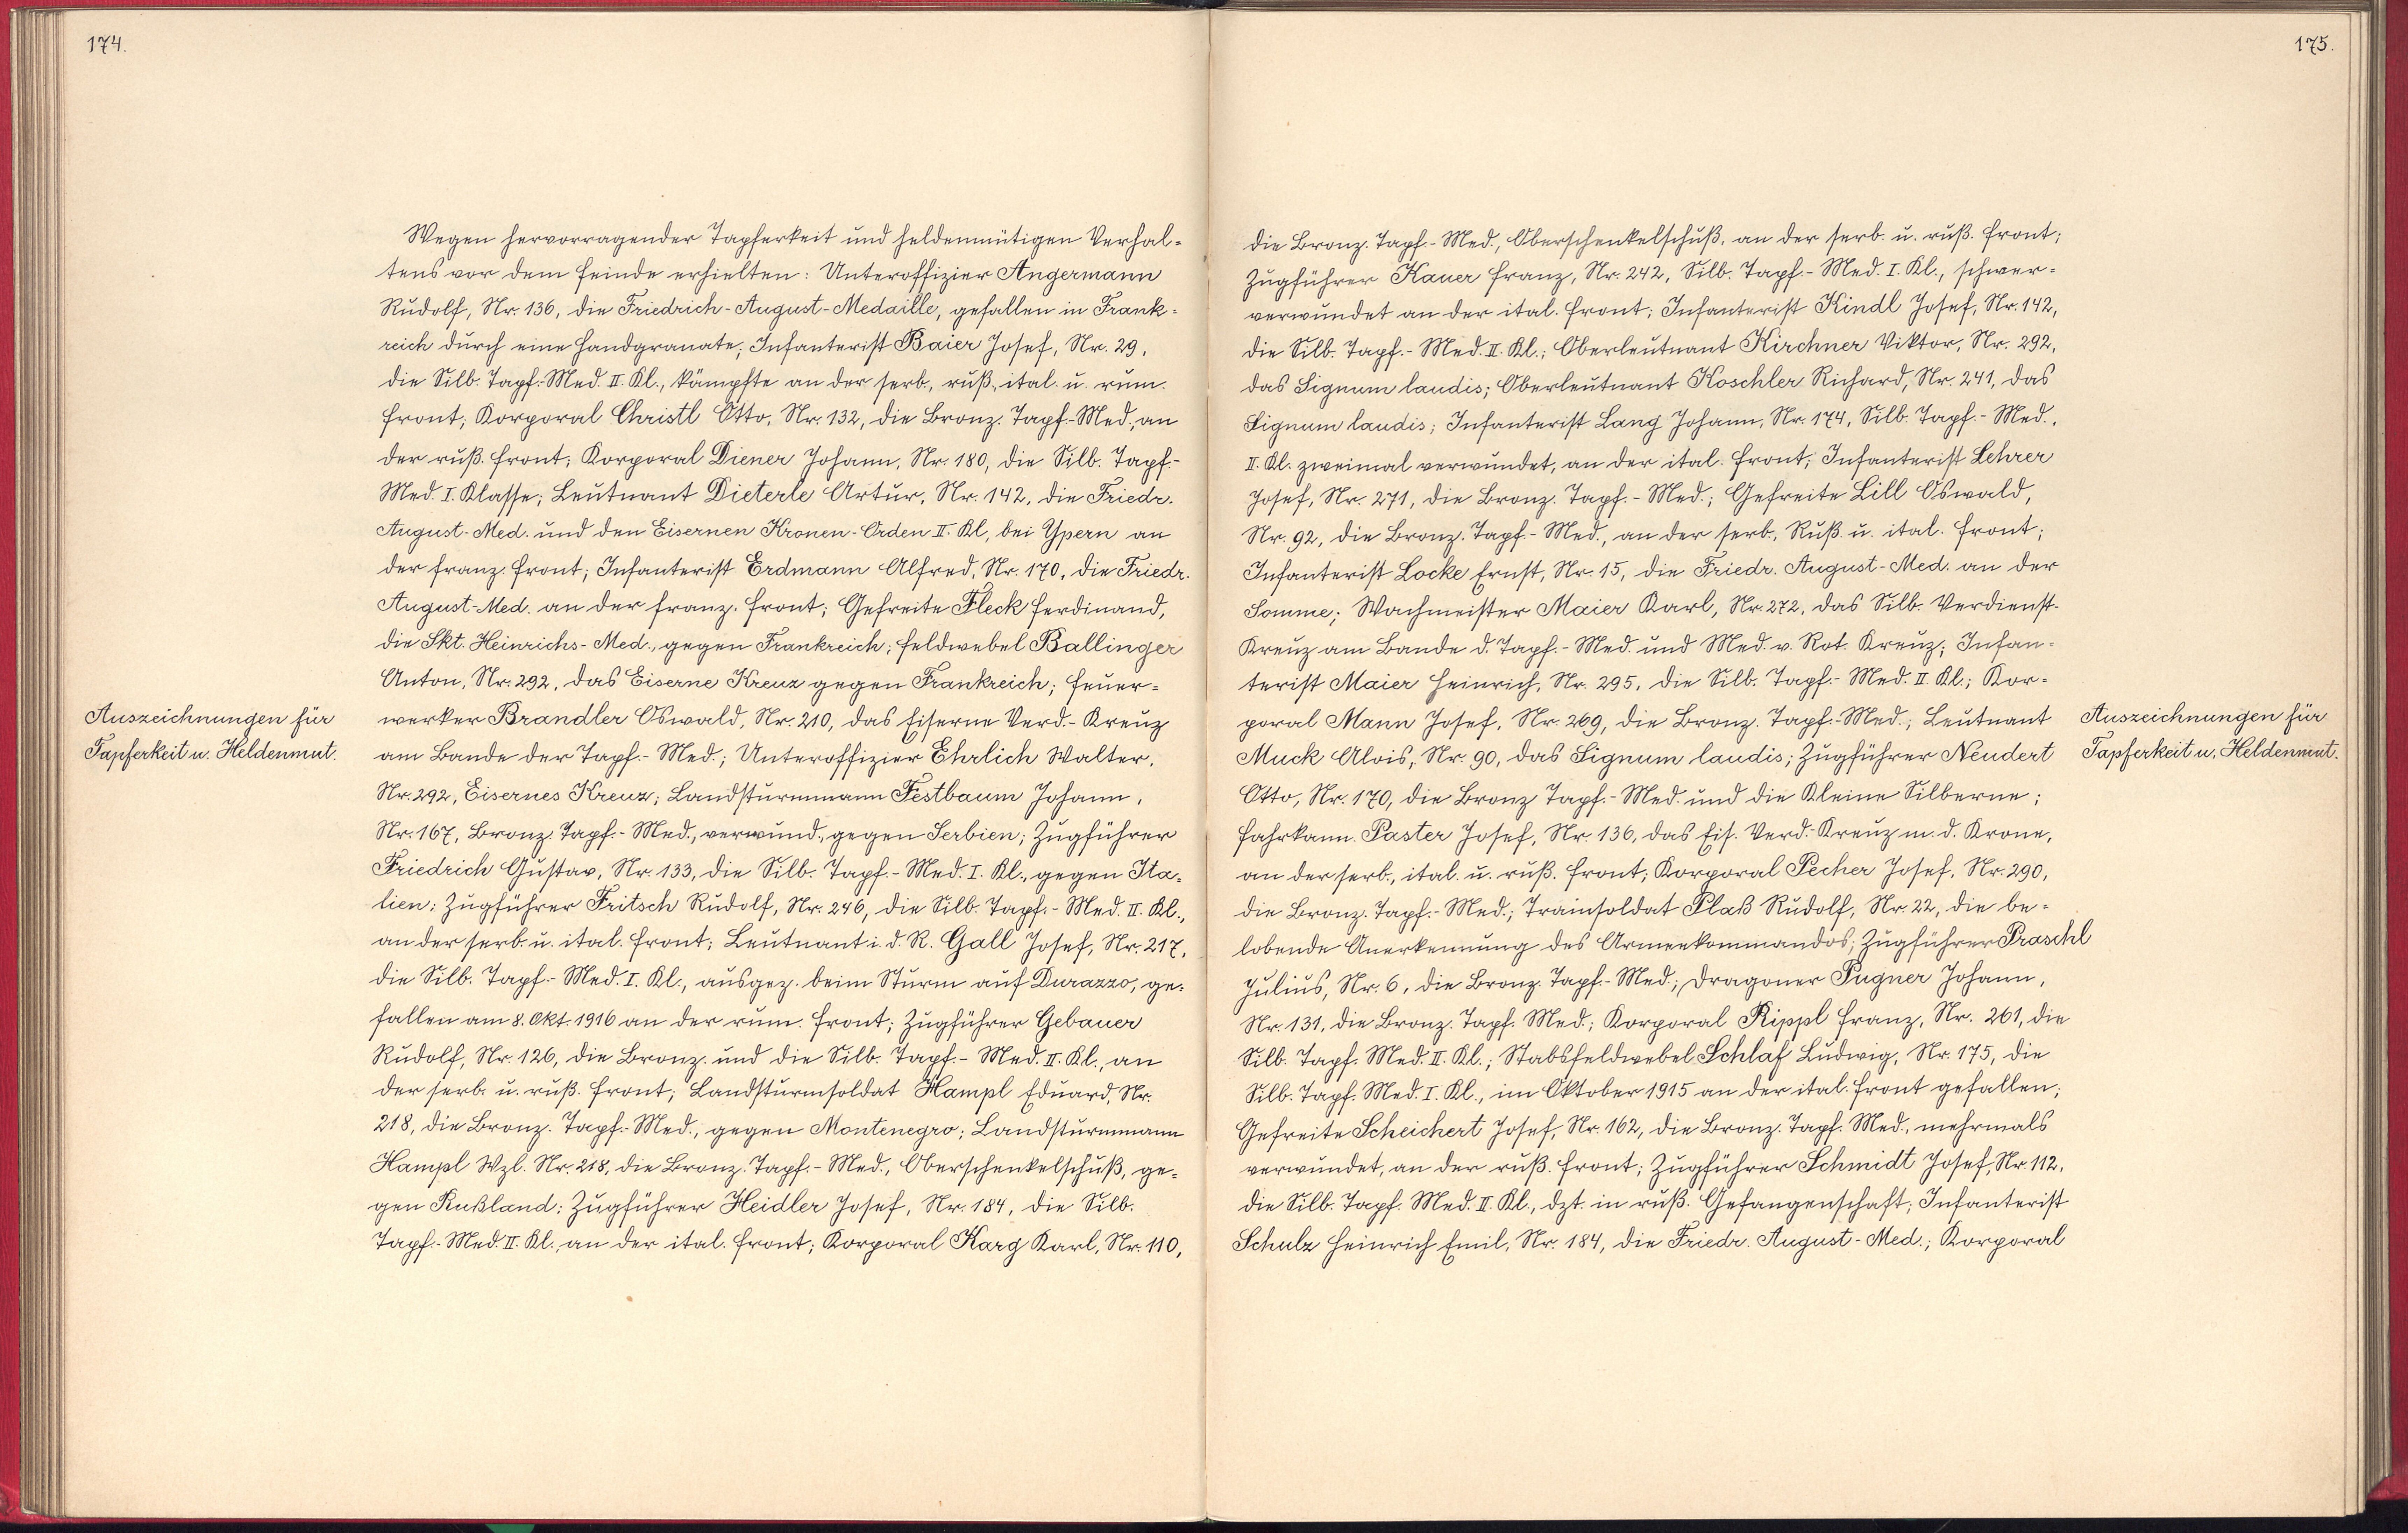 174.
Wegen hervorragender Tapferkeit und heldenmütigen Verhal-
tens vor dem Feinde erhielten: Unteroffizier Angermann
Rudolf, Nr. 136, die Friedrich-August-Medaille, gefallen in Frank-
reich durch eine Handgranate; Infanterist Baier Josef, Nr. 29,
die Silb. Tapf.-Med. II. Kl., kämpfte an der serb., ruß., ital. u. rum.
Front; Korporal Christl Otto, Nr. 132, die Bronz. Tapf.-Med., an
der ruß. Front; Korporal Diener Johann, Nr. 180, die Silb. Tapf.-
Med. I. Klasse; Leutnant Dieterle Artur, Nr. 142, die Friedr.
August-Med. und den Eisernen Kronen-Orden II. Kl, bei Ypern an
der franz. Front; Infanterist Erdmann Alfred, Nr. 170, die Friedr.
August-Med. an der franz. Front; Gefreite Fleck Ferdinand,
die Skt. Heinrichs-Med., gegen Frankreich; Feldwebel Ballinger
Anton, Nr. 292, das Eiserne Kreuz gegen Frankreich; Feuer-
werker Brandler Oswald, Nr. 210, das Eiserne Verd.-Kreuz
am Bande der Tapf.-Med.; Unteroffizier Ehrlich Walter,
Nr. 292, Eisernes Kreuz; Landsturmmann Festbaum Johann,
Nr. 167, Bronz. Tapf.-Med., verwund., gegen Serbien; Zugführer
Friedrich Gustav, Nr. 133, die Silb. Tapf.-Med. I. Kl., gegen Ita-
lien; Zugführer Fritsch Rudolf, Nr. 246, die Silb. Tapf.-Med. II. Kl.,
an der serb. u. ital. Front; Leutnant i. d. R. Gall Josef, Nr. 217,
die Silb. Tapf.-Med. I. Kl., ausgez. beim Sturm auf Durazzo, ge-
fallen am 8. Okt. 1916 an der rum. Front; Zugführer Gebauer
Rudolf, Nr. 126, die Bronz. und die Silb. Tapf.-Med. II. Kl., an
der serb. u. ruß. Front; Landsturmsoldat Hampl Eduard, Nr.
218, die Bronz. Tapf.-Med., gegen Montenegro; Landsturmmann
Hampl Wzl. Nr. 218, die Bronz. Tapf.-Med., Oberschenkelschuß, ge-
gen Rußland; Zugführer Heidler Josef, Nr. 184, die Silb.
Tapf.-Med. II. Kl., an der ital. Front; Korporal Karg Karl, Nr. 110,
Auszeichnungen für
Tapferkeit u. Heldenmut.
175.
die Bronz. Tapf.-Med., Oberschenkelschuß, an der serb. u. ruß. Front;
Zugführer Kauer Franz, Nr. 242, Silb. Tapf.-Med. I. Kl., schwer-
verwundet an der ital. Front; Infanterist Kindl Josef, Nr. 142,
die Silb. Tapf.-Med. II. Kl.; Oberleutnant Kirchner Viktor, Nr. 292,
das Signum laudis; Oberleutnant Koschler Richard, Nr. 241, das
Signum laudis; Infanterist Lang Johann, Nr. 174, Silb. Tapf.-Med.,
II. Kl. zweimal verwundet, an der ital. Front; Infanterist Lehrer
Josef, Nr. 271, die Bronz. Tapf.-Med.; Gefreite Lill Oswald,
Nr. 92, die Bronz. Tapf.-Med., an der serb., Ruß. u. ital. Front;
Infanterist Locke Ernst, Nr. 15, die Friedr. August-Med. an der
Somme; Wachmeister Maier Karl, Nr. 272, das Silb. Verdienst-
Kreuz am Bande d. Tapf.-Med. und Med. v. Rot. Kreuz; Infan-
terist Maier Heinrich, Nr. 295, die Silb. Tapf.-Med. II. Kl.; Kor-
poral Mann Josef, Nr. 269, die Bronz. Tapf.-Med.; Leutnant
Muck Alois, Nr. 90, das Signum laudis; Zugführer Neudert
Otto, Nr. 170, die Bronz Tapf.-Med. und die Kleine Silberne;
Fahrkann. Paster Josef, Nr. 136, das Eis. Verd.-Kreuz m. d. Krone,
an der serb., ital. u. ruß. Front; Korporal Pecher Josef, Nr. 290,
die Bronz. Tapf.-Med.; Trainsoldat Plaß Rudolf, Nr. 22, die be-
lobende Anerkennung des Armeekommandos; Zugführer Praschl
Julius, Nr. 6, die Bronz. Tapf.-Med.; Dragoner Pugner Johann,
Nr. 131, die Bronz. Tapf. Med.; Korporal Rippl Franz, Nr. 261, die
Silb. Tapf. Med. II. Kl.; Stabsfeldwebel Schlaf Ludwig, Nr. 175, die
Silb. Tapf. Med. I. Kl., im Oktober 1915 an der ital. Front gefallen;
Gefreite Scheichert Josef, Nr. 162, die Bronz. Tapf. Med., mehrmals
verwundet, an der ruß. Front; Zugführer Schmidt Josef, Nr. 112,
die Silb. Tapf. Med. II. Kl., dzt. in ruß. Gefangenschaft; Infanterist
Schulz Heinrich Emil, Nr. 184, die Friedr. August-Med.; Korporal
Auszeichnungen für
Tapferkeit u. Heldenmut.